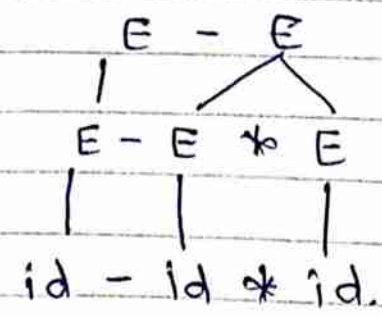 E - E
E - E * E
id - id * id.